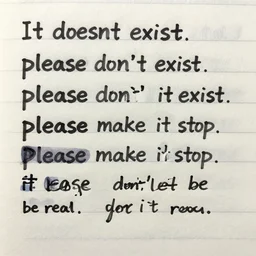 It doesnt exist.
please don't exist.
please don' it exist.
please make it stop.
Please make it stop.
it don't let be
be real. it